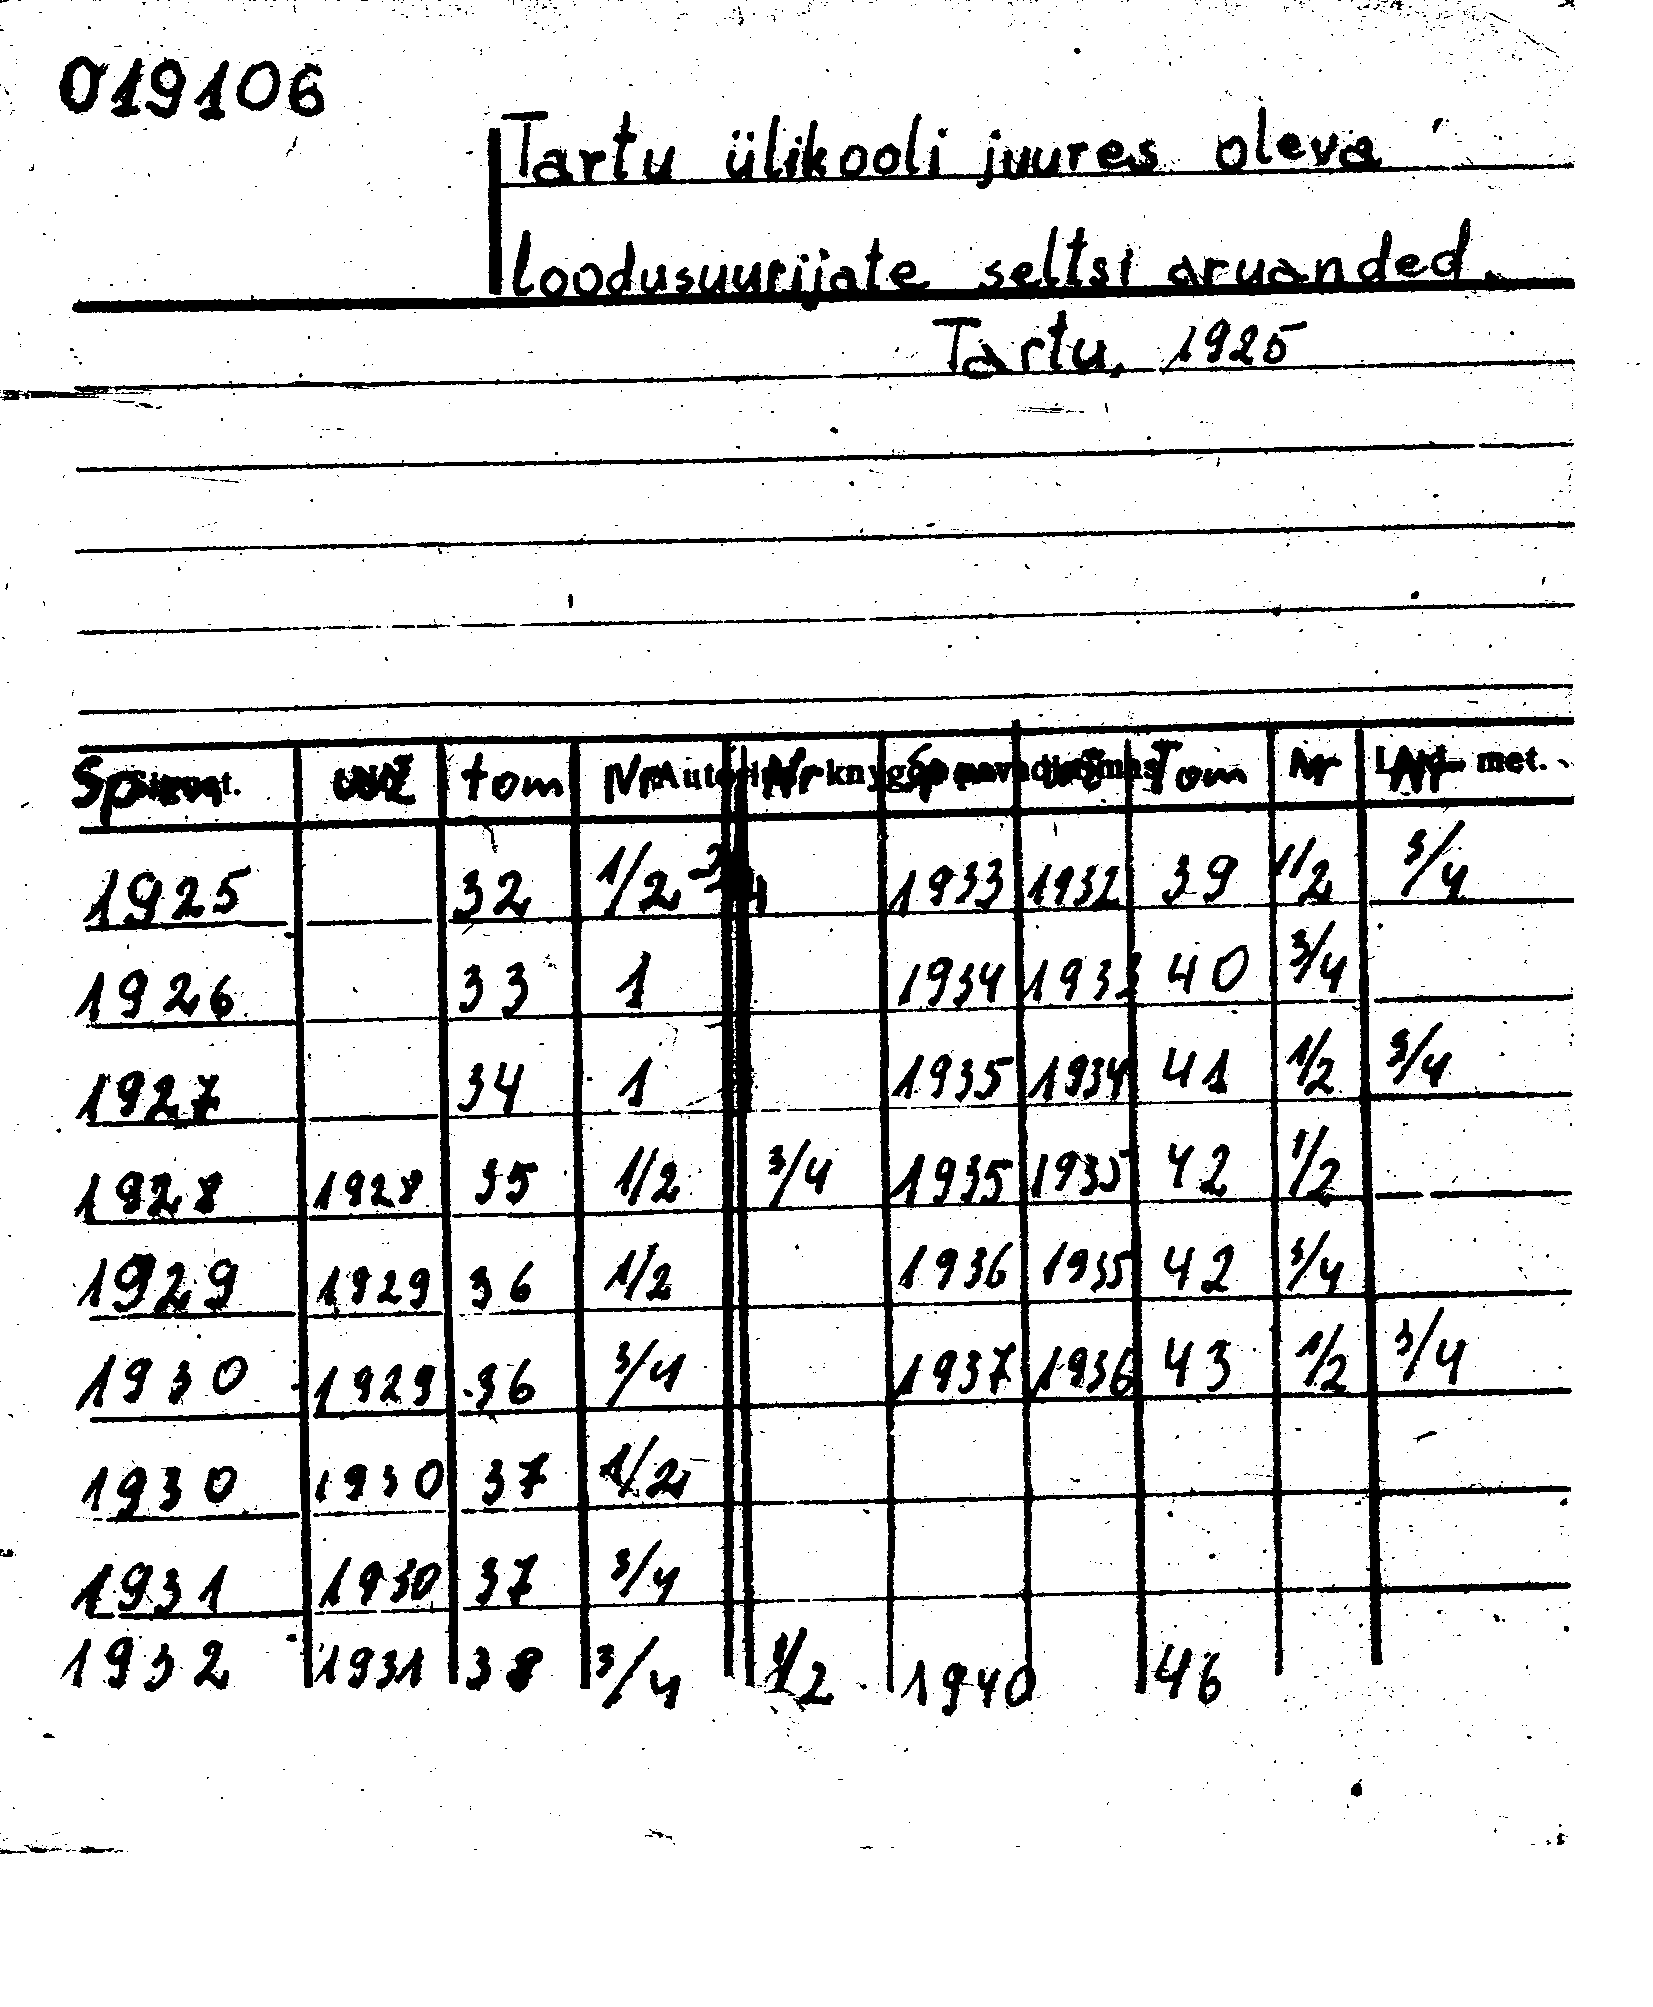 019106
Tartu ülikooli juures oleva
loodusuurijate seltsi aruanded.
Tartu, 1925
Sp tom Nr Nr Sp Tom Nr met.
1925 32 1/2-3/4 1933 1932 39 1/2 3/4
1926 33 1 1934 1933 40 3/4
1927 34 1 1935 1934 41 1/2 3/4
1928 1928 35 1/2 3/4 1935 1935 42 1/2
1929 1929 36 1/2 1936 1935 42 3/4
1930 1929 36 3/4 1937 1936 43 1/2 3/4
1930 1930 37 1/2
1931 1930 37 3/4
1932 1931 38 3/4 1/2 1940 46